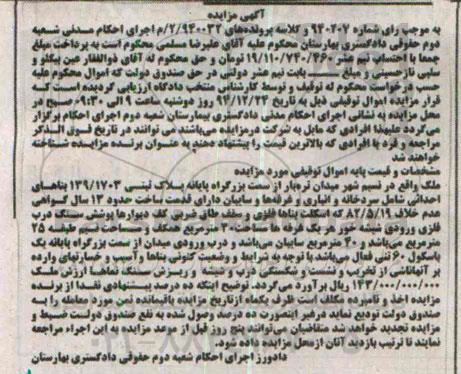 آگهی مزایده
به موجب رای شماره ۹۴۰۲۰۷ و کلاسه پرونده‌های ۲/۹۴۰۰۳۲/م اجرای احکام مدنی شعبه
دوم حقوقی دادگستری بهارستان محکوم علیه آقای علیرضا مسلمی محکوم است به پرداخت مبلغ
جمعا با احتساب نیم عشر ۱۹/۱۱۰/۷۴۰/۴۶۰ تومان و حق محکوم له آقای ذوالفقار عین بیگلو و
سلبی نازحسینی و مبلغ بابت نیم عشر دولتی در حق صندوق دولت که اموال محکوم علیه
حسب درخواست محکوم له توقیف و توسط کارشناس منتخب دادگاه ارزیابی گردیده است که
قرار مزایده اموال توقیفی ذیل به تاریخ ۹۴/۱۲/۲۴ روز دوشنبه ساعت ۹ الی ۰۹:۳۰ صبح در
محل مزایده به نشانی اجرای احکام مدنی دادگستری بیمارستان شعبه دوم اجرای احکام برگزار
می‌گردد علیهذا افرادی که مایل به شرکت در مزایده می‌باشند می توانند در تاریخ فوق الذکر
مراجعه و فرد یا افرادی که بالاترین قیمت را پیشنهاد دهند به عنوان برنده مزایده شناخته
خواهند شد
مشخصات و قیمت پایه اموال توقیفی مورد مزایده
ملک واقع در نسیم شهر میدان تره‌بار از سمت بزرگراه پایانه پلاک ثبتی ۱۳۹/۱۷۰۳ بناهای
احداثی شامل سردخانه و انباری و غرفه‌ها و سایبان دارای قدمت ساخت حدود ۱۳ سال گواهی
عدم خلاف ۸۲/۵/۱۹ که اسکلت بناها فلزی و سقف طاق ضربی کف دیوارها پوشش سنگ درب
فلزی ورودی شیشه خور هر یک غرفه ها مساحت ۳۰ مترمربع همکف و مساحت نیم طبقه ۲۵
مترمربع می‌باشد و ۴۰ مترمربع سایبان می‌باشد و درب ورودی میدان از سمت بزرگراه پایانه یک
باسکول ۶۰ تنی فعال می‌باشد با توجه به شرایط و وضعیت کنونی بناها و آسیب و خسارتهای وارده
بر آنها ناشی از تخریب و نشست و شکستگی درب و شیشه و ریزش سنگ نماها ارزش ملک
۱۴۳/۰۰۰/۰۰۰/۰۰۰ ریال برآورد می‌گردد. توضیح اینکه ده درصد پیشنهادی نقدا از برنده
مزایده اخذ و نامبرده مکلف است ظرف یکماه از تاریخ مزایده باقیمانده ثمن مورد معامله را به
صندوق دولت تودیع نماید در غیر اینصورت ده درصد وصول شده به نفع صندوق دولت ضبط و
مزایده تجدید خواهد شد متقاضیان می‌توانند پنج روز قبل از موعد مزایده به این اجراء مراجعه
نمایند تا ترتیب بازدید آنان از محل مزایده داده شود.
دادورز اجرای احکام شعبه دوم حقوقی دادگستری بهارستان